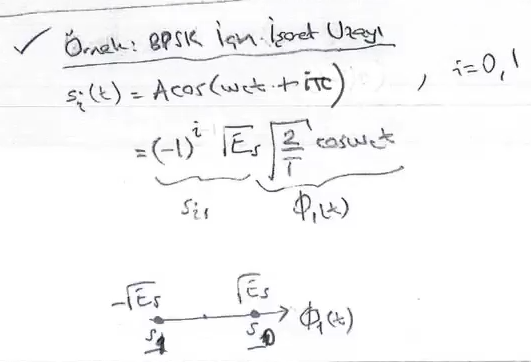 ✓ Örnek: BPSK İçin İşaret Uzayı
sᵢ(t) = A cos(wct + iπ) , i=0,1
= (-1)ⁱ √Es √(2/T) coswct
sᵢ₁ ϕ₁(t)
-√Es √Es
s₁ s₀ ϕ₁(t)